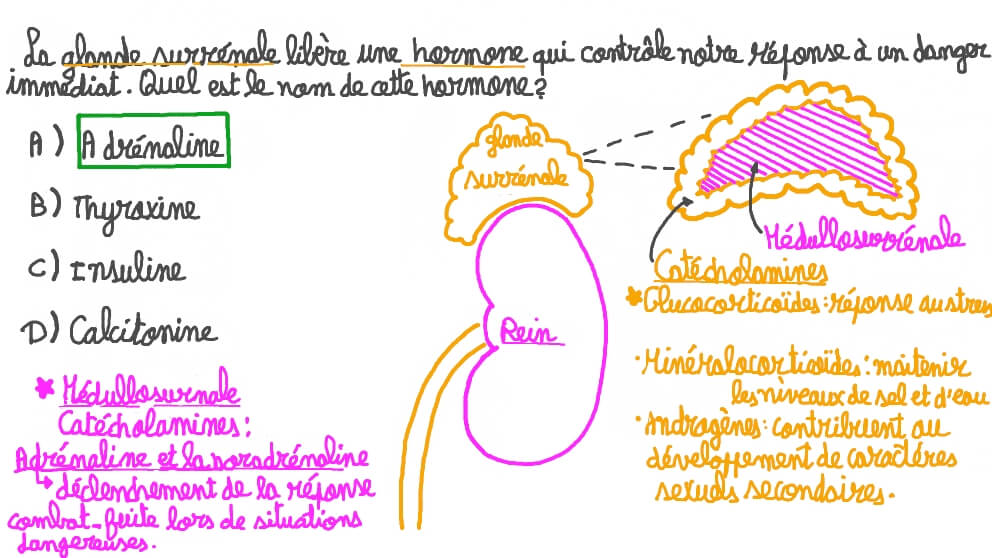 La glande surrénale libère une hormone qui contrôle notre réponse à un danger
immédiat. Quel est le nom de cette hormone?
A) Adrénaline
B) Thyroxine
C) Insuline
D) Calcitonine
glande
surrénale
Rein
Médullosurrénale
Catécholamines
* Glucocorticoïdes : réponse au stres
· Minéralocorticoïdes : maitenir
les niveaux de sel et d'eau
· Androgènes : contribuent au
développement de caractères
sexuels secondaires.
* Médullosurnale
Catécholamines :
Adrénaline et la noradrénaline
↳ déclenchement de la réponse
combat-fuite lors de situations
dangereuses.